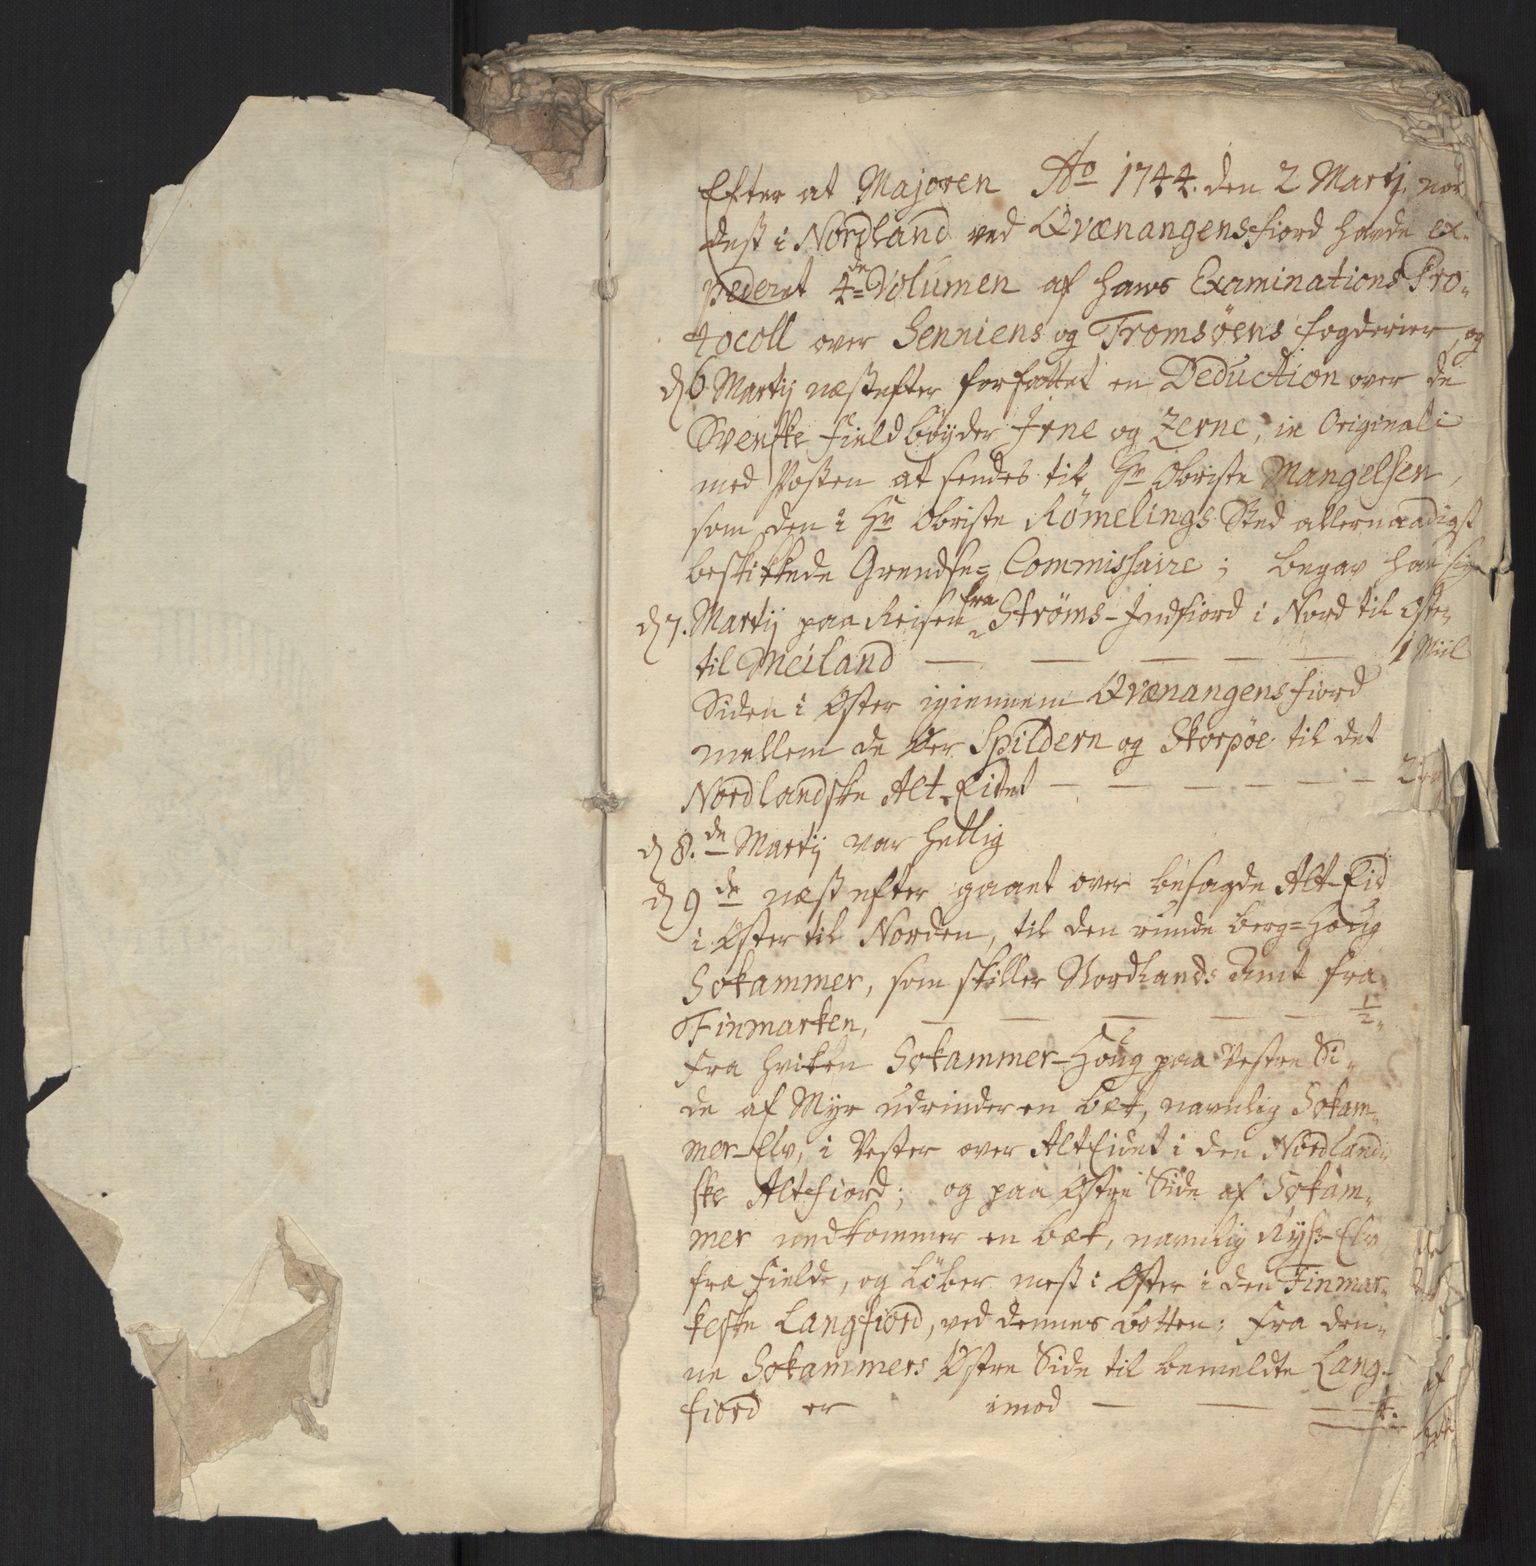 Efter at Majoren Ao 1744. den 2 Martij. nor
dest i Nordland ved Qvænangensfiord havde ex-
pederet 4de Volumen af hans Examinations Pro-
tocoll over Senniens og Tromsøens fogderier, og
d 6 Martij næst efter forfattet en Deduction over de
Svenske Field bøyder Irne og Zerne, in Originali
med Posten at sendes til Hr Obriste Mangelsen,
som den i Hr Obriste Rømelings Sted allernaadigst
beskikkede Grendse-Commissaire; begav han sig
d 7. Martij paa Reisen fra Strøms-Indfiord i Nord til Øste
til Meiland — — — — — 1 Miil
Siden i Øster igiennem Qvænangensfiord
mellem de Øer Spildern og Skorpøe til det
Nordlandske Alt-Eidet — — — — — — 2
d 8.de Martij var hellig
d 9de næst efter gaaet over besagde Alt-Eid
i Øster til Norden, til den runde berg-Houg
Sokammer, som skiller Nordlands Amt fra
Finmarken, — — — — — 1/2
Fra hvilken Sokammer-Houg paa Vestre Si-
de af Myr udrinder en bæk, navnlig Sokam-
mer-Elv, i Vester over AltEidet i den Nordland-
ske Altefiord; og paa Østre Side af Sokam-
mer nedkommer en bæk, navnlig Ryss-Elv
fra Fielde, og løber mest i Øster i den Finmar-
keske Langfiord, ved dennes botten: Fra den-
ne Sokammers Østre Side til bemeldte Lang-
fiord er imod — — —